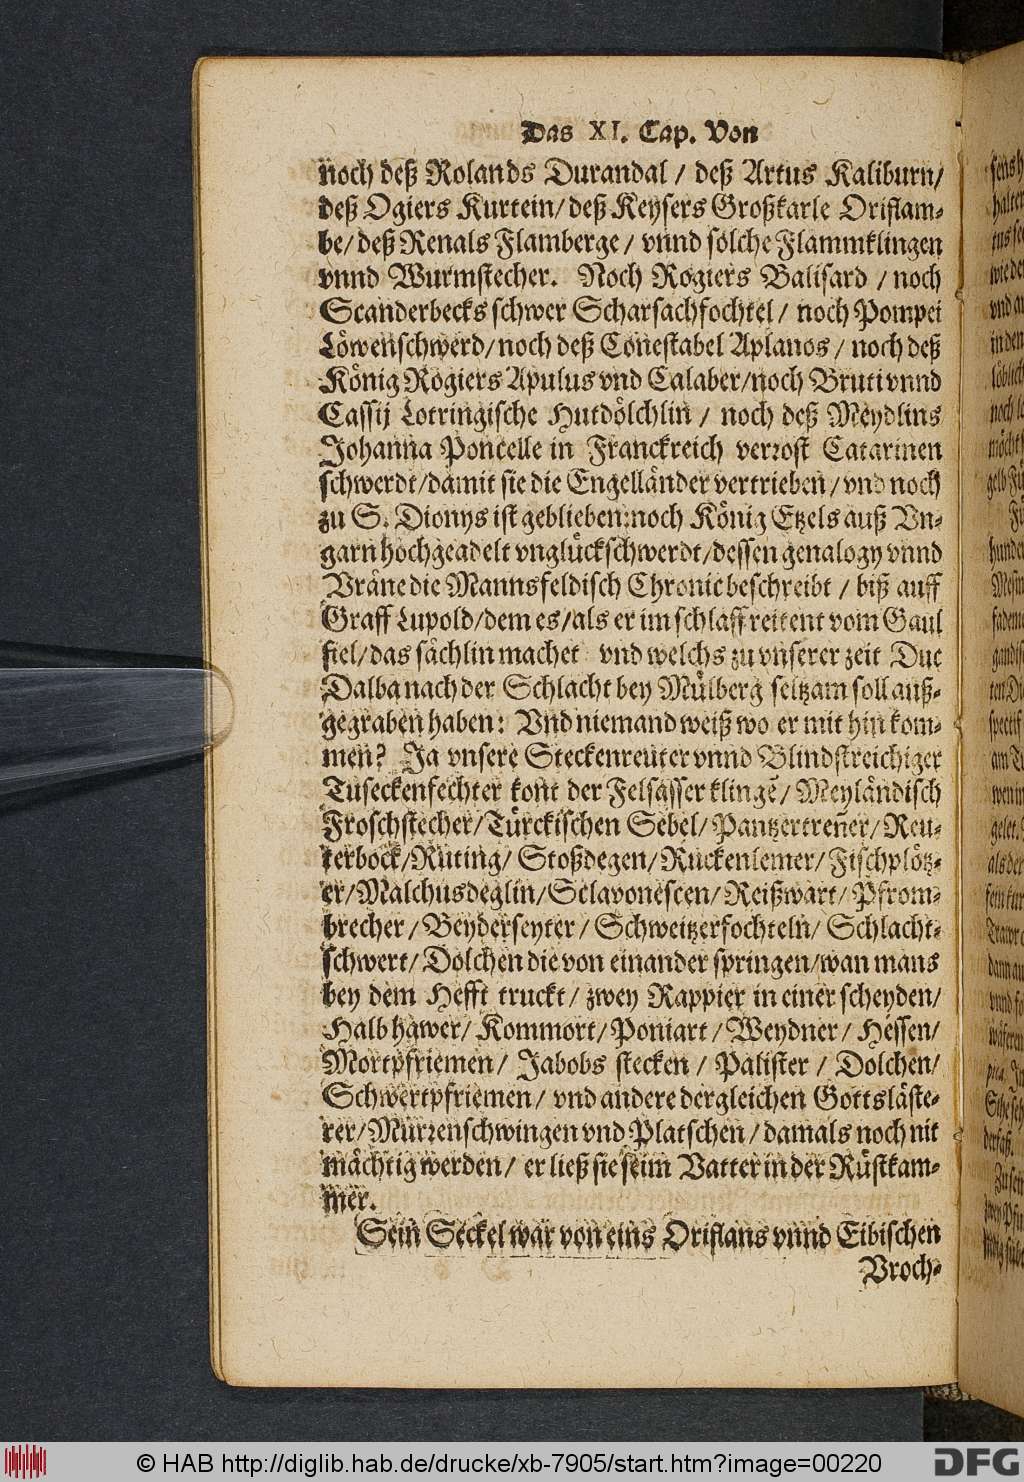 Das XI. Cap. Von
noch deß Rolands Durandal / deß Artus Kaliburn/
deß Ogiers Kurtein/ deß Keysers Großkarle Oriflam-
be/ deß Renals Flamberge / vnnd solche Flammklingen
vnnd Wurmstecher. Noch Rogiers Balisard / noch
Scanderbecks schwer Scharsachfochtel / noch Pompei
Löwenschwerd/ noch deß Conestabel Aplanos / noch deß
König Rogiers Apulus vnd Calaber/noch Bruti vnnd
Cassij Lotringische Hutdölchlin / noch deß Meydlins
Johanna Poncelle in Franckreich verrost Catarinen
schwerdt/damit sie die Engelländer vertrieben/ vnd noch
zu S. Dionys ist geblieben: noch König Etzels auß Vn-
garn hochgeadelt vnglückschwerdt/dessen genalogy vnnd
Vräne die Mannsfeldisch Chronic beschreibt / biß auff
Graff Lupold/dem es/als er im schlaff reitent vom Gaul
fiel/das sächlin machet vnd welchs zu vnserer zeit Duc
Dalba nach der Schlacht bey Mülberg seltzam soll auß-
gegraben haben: Vnd niemand weiß wo er mit hin kom-
men? Ja vnsere Steckenreuter vnnd Blindstreichiger
Tuseckenfechter kont der Felsasser klingē/ Meyländisch
Froschstecher/Türckischen Sebel/ Pantzertreñer/ Reu-
terbock/Rüting/ Stoßdegen/Ruckenlemer/Fischplötz-
er/Malchusdeglin/Sclavonescen/Reißwart/ Pfrom-
brecher/Beyderseyter / Schweitzerfochteln/ Schlacht-
schwert/ Dolchen die von einander springen/wan mans
bey dem Hefft truckt/ zwey Rappier in einer scheyden/
Halb hawer/ Kommort/Poniart / Weydner/ Hessen/
Mortpfriemen/ Jabobs stecken / Palister / Dolchen/
Schwertpfriemen/ vnd andere dergleichen Gottsläste-
rer/Mürrenschwingen vnd Platschen/ damals noch nit
mächtig werden/ er ließ sie seim Vatter in der Rüstkam-
mer.
Sein Seckel war von eins Oriflans vnnd Eibischen
Vroch-
© HAB http://diglib.hab.de/drucke/xb-7905/start.htm?image=00220
DFG